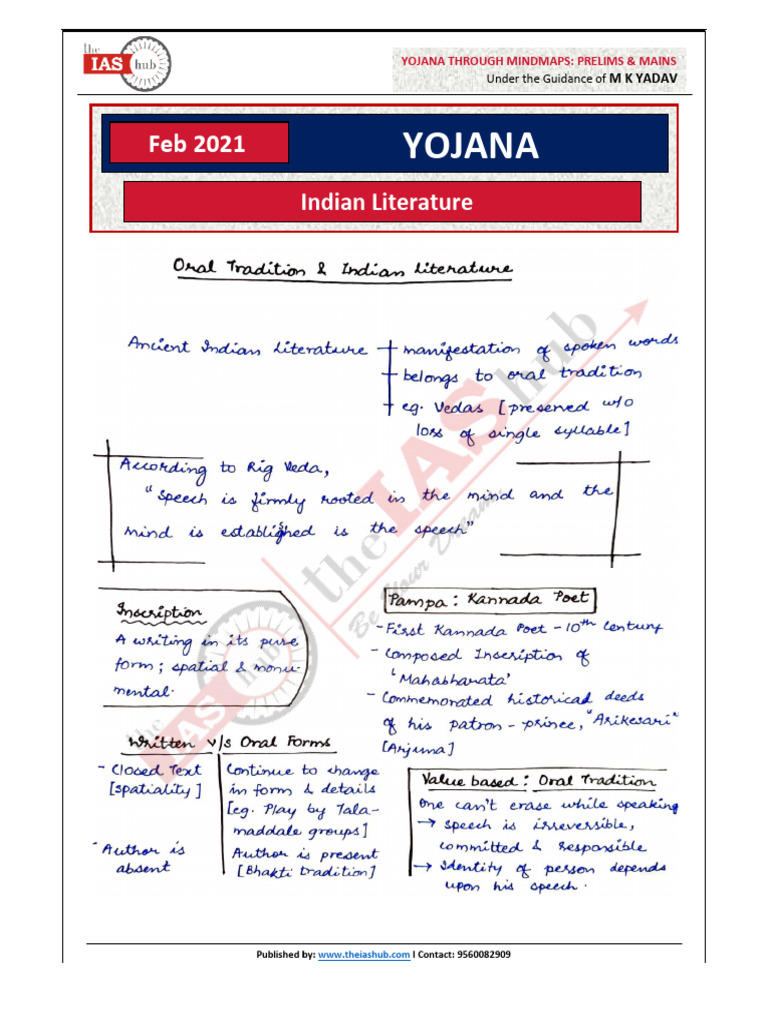 the
IAS hub
YOJANA THROUGH MINDMAPS: PRELIMS & MAINS
Under the Guidance of M K YADAV
Feb 2021
YOJANA
Indian Literature
Oral Tradition & Indian Literature
Ancient Indian Literature
manifestation of spoken words
belongs to oral tradition
eg. Vedas [preserved w/o
loss of single syllable]
According to Rig Veda,
"Speech is firmly rooted in the mind and the
mind is established is the speech"
Inscription
A writing in its pure
form; spatial & monu-
mental.
Pampa: Kannada Poet
- First Kannada Poet - 10th Century
- Composed Inscription of
'Mahabharata'
- Commemorated historical deeds
of his patron - prince, "Arikesari"
[Arjuna]
Written v/s Oral Forms
- Closed Text
[spatiality]
- Author is
absent
Continue to change
in form & details
[eg. Play by Tala-
maddale groups]
Author is present
[Bhakti tradition]
Value based: Oral Tradition
One can't erase while speaking
→ speech is irreversible,
committed & responsible
→ Identity of person depends
upon his speech.
the IAS hub
Be Your Dreams
the IAS hub
Published by: www.theiashub.com I Contact: 9560082909